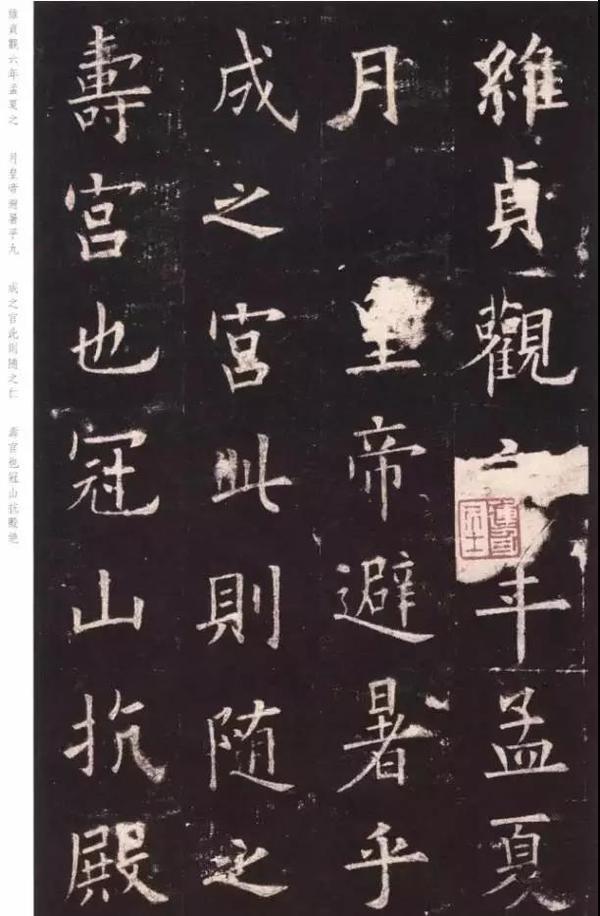 維貞觀六年孟夏
月皇帝避暑乎
成之宮此則随之
壽宮也冠山抗殿
維貞觀六年孟夏之 月皇帝避暑乎九 成之宮此則随之仁 壽宮也冠山抗殿絶